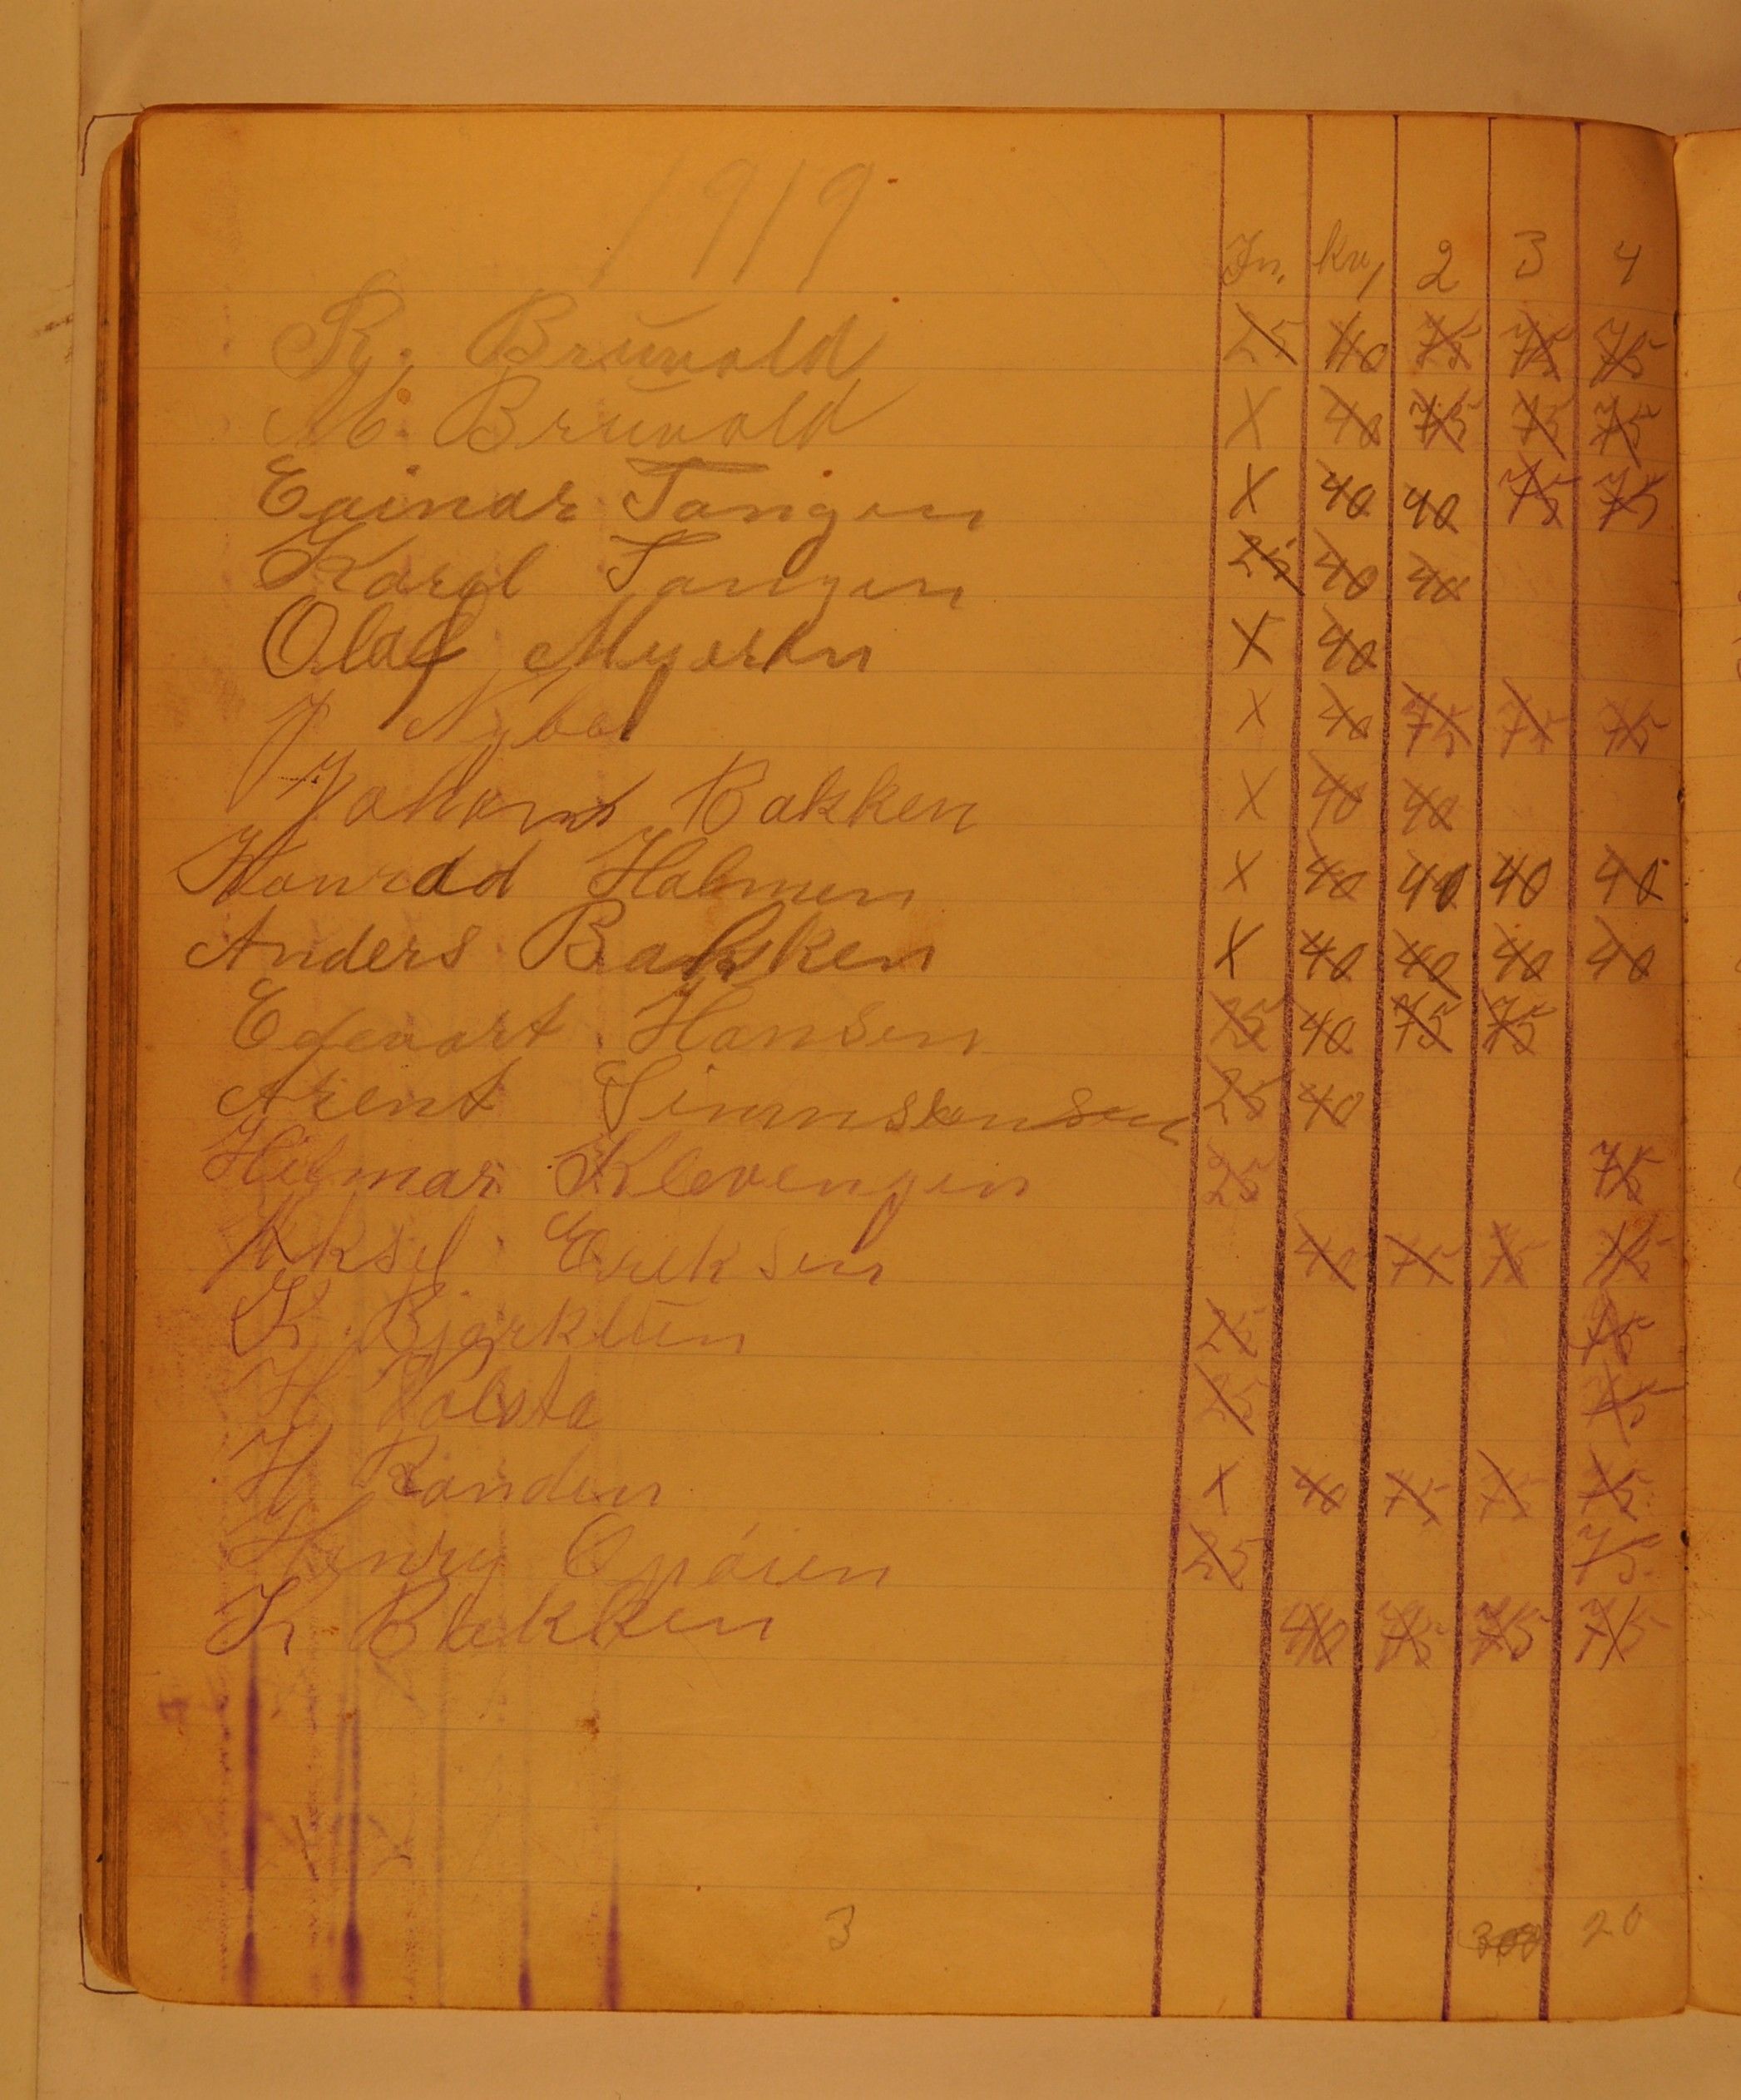 1919
In. kv, 2 3 4
R. Bruvold 25 40 75 75 75
M. Bruvold X 40 75 75 75
Eainar Tangen X 40 40 75 75
Karol Tangen 25 40 40
Olaf Myaren X 40
J Nybo X 40 75 75 75
Johans Bakken X 40 40
Konrad Holmen X 40 40 40 40
Anders Bakken X 40 40 40 40
Edevart Hansen 25 40 75 75
Arent 25 40
Hilmar Klevengen 25 75
Aksel Eriksen 40 75 75 75
K. Bjørklun 25 75
H. 25 75
H Randen X 40 75 75 75
Henry 25 75
K Bakken 40 75 75 75
3 20